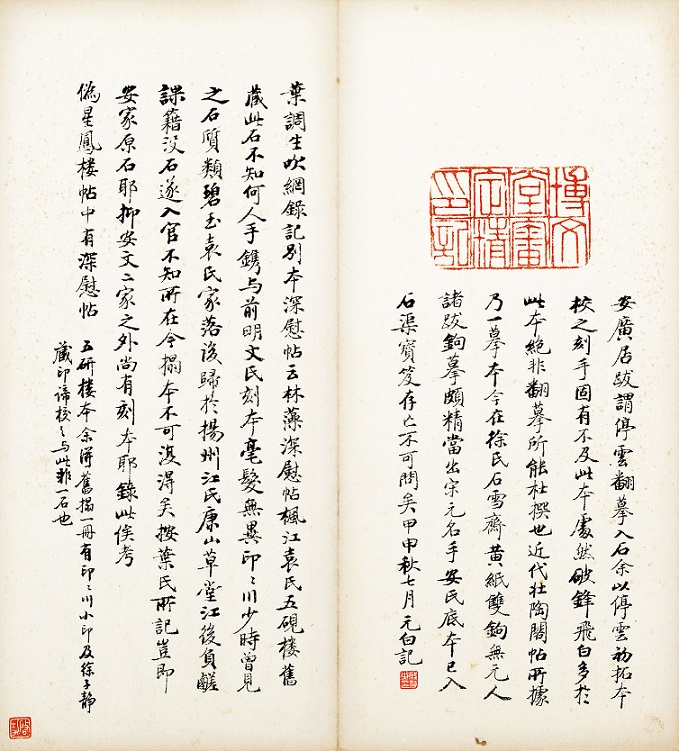 博文堂審定精印記
安廣居跋謂停雲翻摹入石余以停雲初拓本
校之刻手固有不及此本處然破鋒飛白多於
此本絕非翻摹所能杜撰也近代壯陶閣帖所據
乃一摹本今在徐氏石雪齋黄紙雙鉤無元人
諸跋鉤摹頗精當出宋元名手安氏底本已入
石渠寶笈存亡不可問矣甲申秋七月元白記
葉調生吹網錄記別本深慰帖云林藻深慰帖楓江袁氏五硯樓舊
藏此石不知何人手鐫与前明文氏刻本毫髮無異印〻川少時曾見
之石質類碧玉袁氏家落後歸於揚州江氏康山草堂江後負鹺
課藉没石遂入官不知所在今搨本不可復得矣按葉氏所記豈即
安家原石耶抑安文二家之外尚有刻本耶錄此俟考
偽星鳳樓帖中有深慰帖
五研樓本余併舊搨一冊有印〻川小印及徐子靜
藏印諦校之与此非一石也